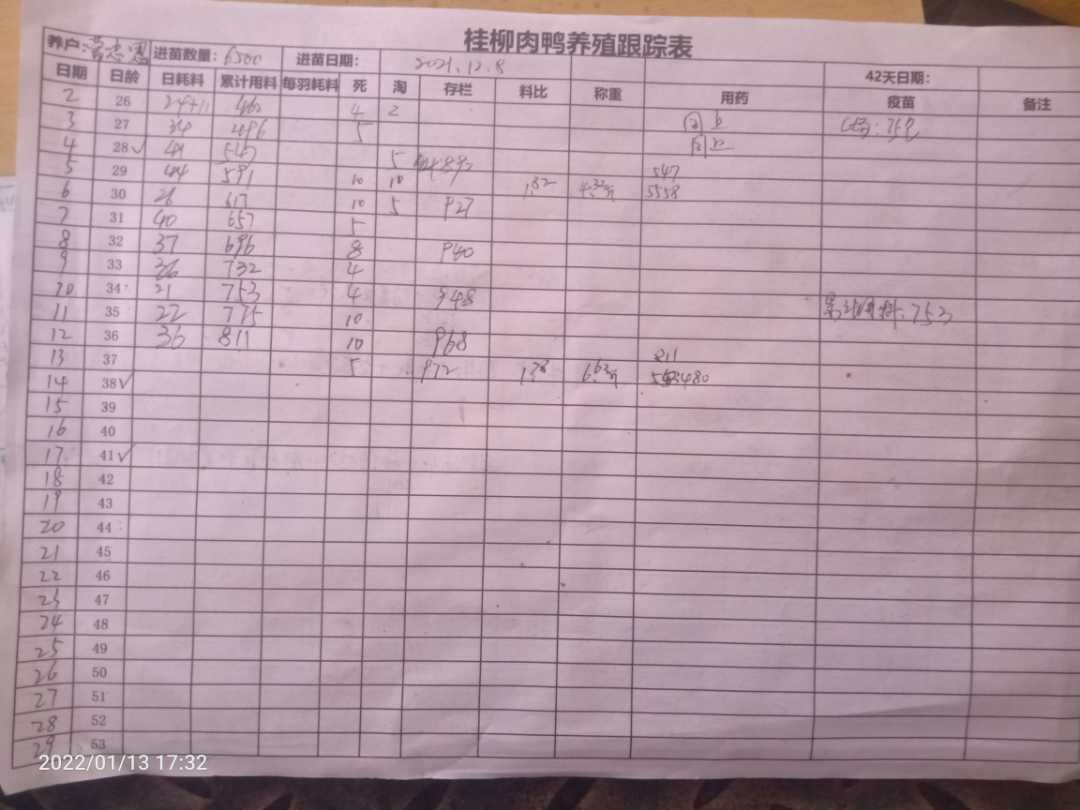 桂柳肉鸭养殖跟踪表
养户: 进苗数量: 6500 进苗日期: 2021.12.8 42天日期:
日期 日龄 日耗料 累计用料 每羽耗料 死 淘 存栏 料比 称重 用药 疫苗 备注
2 26 24+11 462 4 2
3 27 34 496 5
4 28✓ 547 5
5 29 44 591 10 10 547
6 30 26 617 10 5 927 1.82 5558
7 31 40 657 5
8 32 37 696 8 940
9 33 36 732 4
10 34 21 753 4 948 753
11 35 22 775 10
12 36 36 811 10 968
13 37 5 972 811
14 38✓
15 39
16 40
17 41✓
18 42
19 43
20 44
21 45
22 46
23 47
24 48
25 49
26 50
27 51
28 52
29 53
2022/01/13 17:32